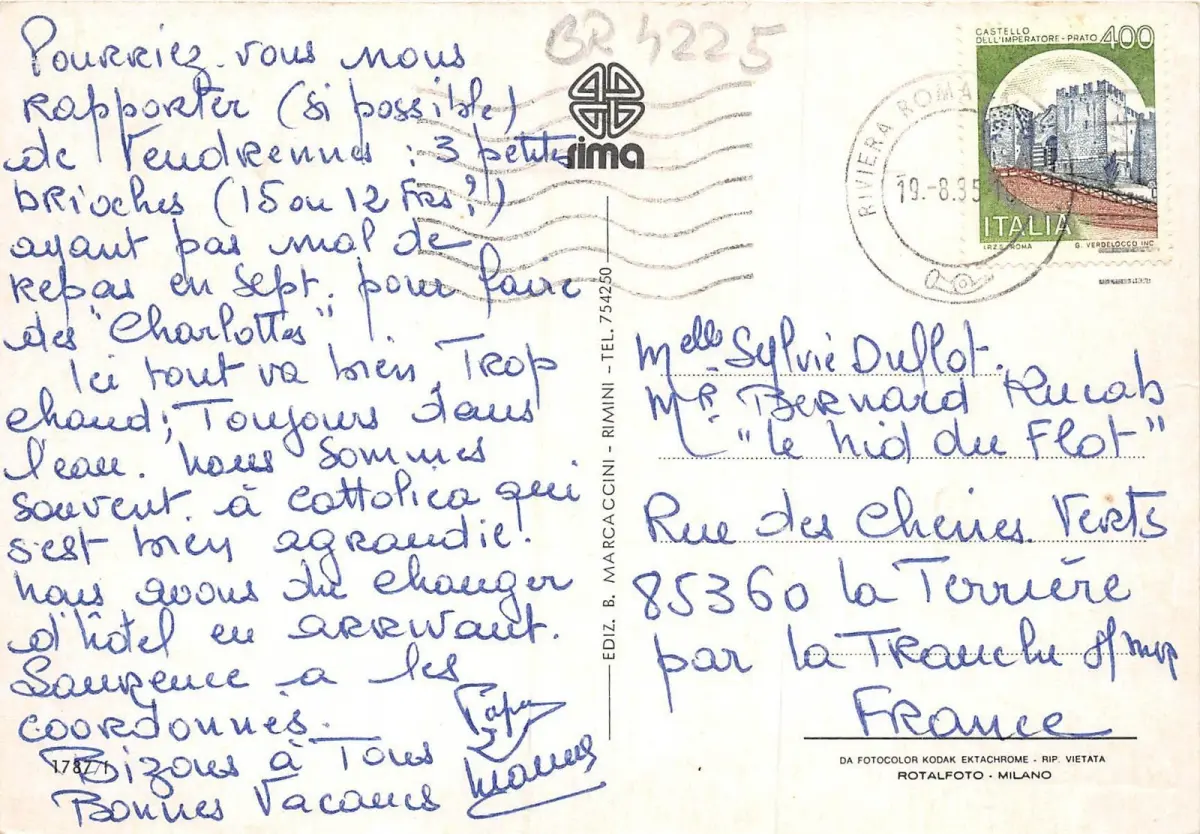 Pourriez-vous nous
rapporter (si possible)
de Vendrennes : 3 petites
brioches (15 ou 12 Frs ?)
ayant pas mal de
repas en Sept. pour faire
des "Charlottes"
Ici tout va bien. Trop
chaud; Toujours dans
l'eau. Nous sommes
souvent à Cattolica qui
s'est bien agrandie!
Nous avons du changer
d'hôtel en arrivant.
Laurence a les
coordonnés.
Bizous à Tous
Bonnes Vacances
Papa
Maman
1787/1
BR 4225
rima
EDIZ. B. MARCACCINI - RIMINI - TEL. 754250
CASTELLO
DELL'IMPERATORE - PRATO 400
ITALIA
I.P.Z.S. ROMA G. VERDELOCCO INC.
RIVIERA ROMA
19.-8.95
Melle Sylvie Duflot.
Mr. Bernard Rucab
"Le Nid du Flot"
Rue des Chênes Verts
85360 La Terrière
par La Tranche s/mer
France
DA FOTOCOLOR KODAK EKTACHROME - RIP. VIETATA
ROTALFOTO - MILANO